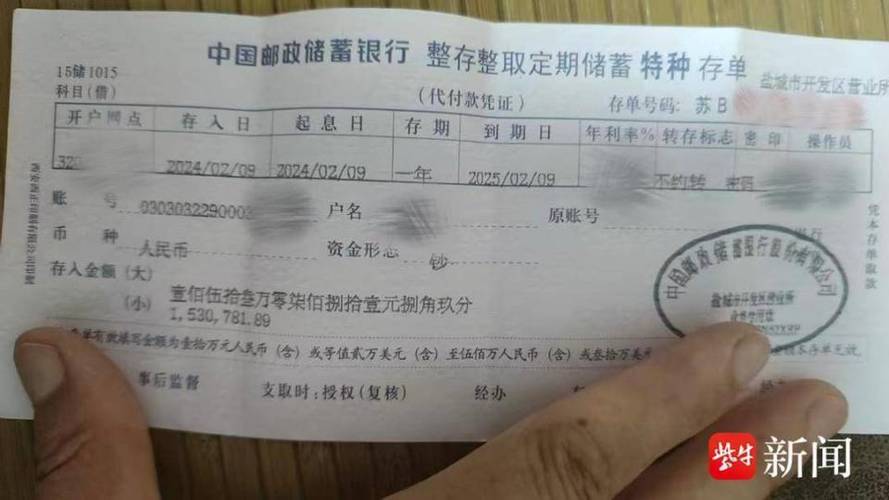 中国邮政储蓄银行 整存整取定期储蓄 特种 存单
15储1015
科目(借)
(代付款凭证)
盐城市开发区营业所
存单号码: 苏 B
开户网点 存入日 起息日 存期 到期日 年利率% 转存标志 密印 操作员
2024/02/09 2024/02/09 一年 2025/02/09 不约转 密码
账 号 0303032290002 户名 原账号
币 种 人民币 资金形态 钞
存入金额 (大) 壹佰伍拾叁万零柒佰捌拾壹元捌角玖分
(小) 1,530,781.89
中国邮政储蓄银行股份有限公司
盐城市开发区营业所
凭本存单取款
单有效填写金额为壹拾万元人民币 (含) 或等值贰万美元 (含) 至伍佰万人民币 (含) 或叁拾万美元
本存单无效
事后监督 支取时: 授权 (复核) 经办
紫牛新闻